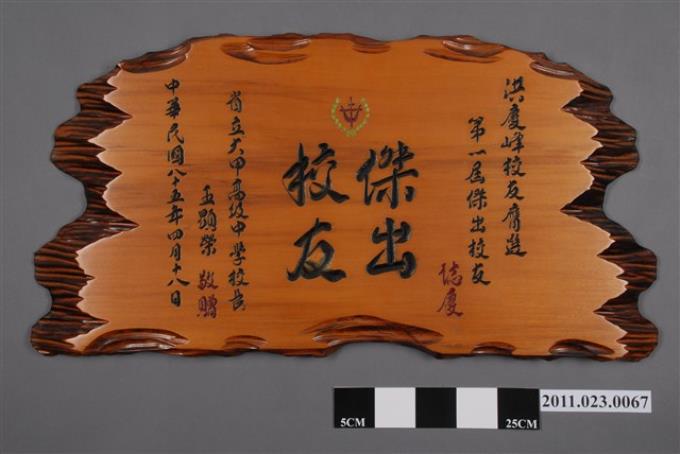 洪慶峰校友膺選
第一屆傑出校友
誌慶
傑出
校友
省立大甲高級中學校長
王顯榮 敬贈
中華民國八十五年四月十八日
5CM
25CM
2011.023.0067